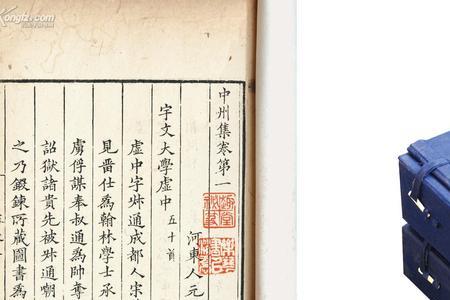 Kongfz.com
中州集卷第一
河東人元
宇文大學虛中 五十首
虛中字叔通成都人宋
見晉仕爲翰林學士承
虜俘謀奉叔通爲帥奪
詔獄諸貴先被叔通嘲
之乃鍛鍊所藏圖書爲